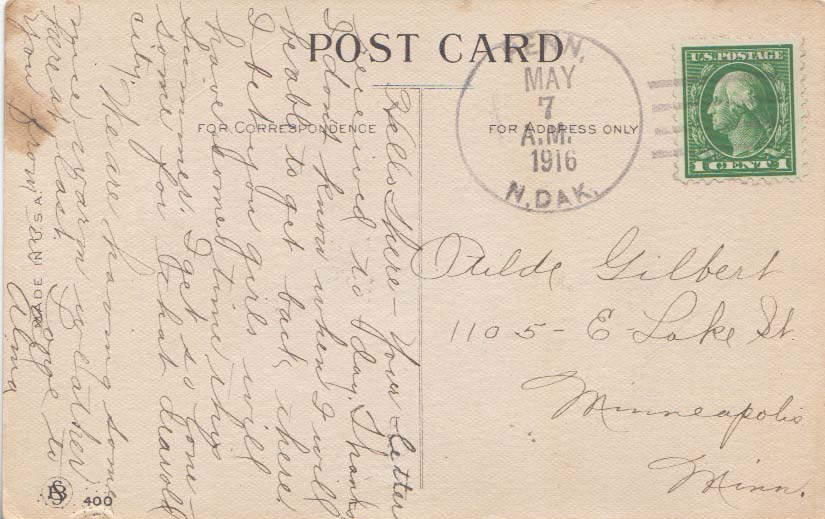 POST CARD
FOR CORRESPONDENCE
FOR ADDRESS ONLY
PENN,
MAY
7
A.M.
1916
N. DAK.
U.S. POSTAGE
1 CENT 1
Hello There - Your letter
received to day. Thanks
I don't know when I will
be able to get back there.
I bet you girls will
have some time this
Summer. I get so lone-
some for that
city.
We are having some
nice warm weather
here at last.
from
Alma
Gilbert
1105 - E - Lake St.
Minneapolis
Minn.
MADE IN U.S.A.
400